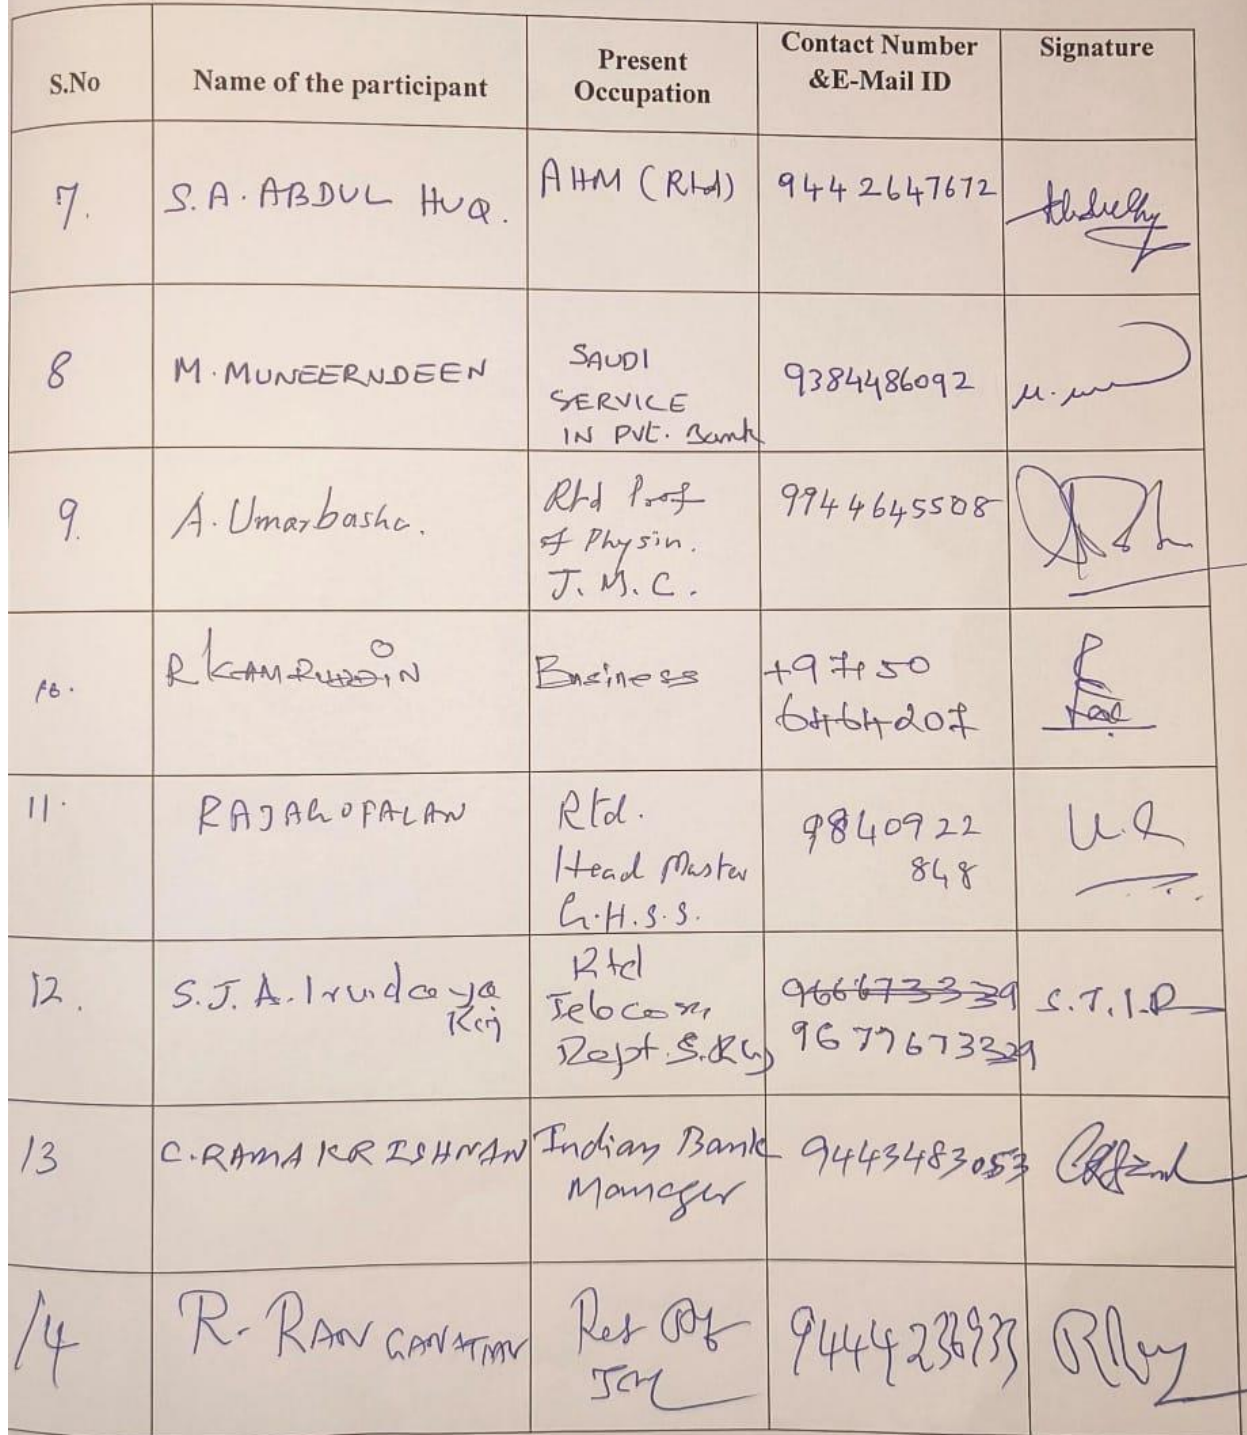 S.No Name of the participant Present Occupation Contact Number &E-Mail ID Signature
7. S.A. ABDUL HUQ. AHM (Rtd) 9442647672
8 M. MUNEERUDEEN SAUDI SERVICE IN PVT. Bank 9384486092
9. A. Umarbasha. Rtd Prof of Physin. J.M.C. 9944645508
10. R KAMRUDDIN Business +97150 6464207
11. RAJAGOPALAN Rtd. Head Master G.H.S.S. 9840922 848 U.R
12. S.J.A. Irudaya Raj Rtd Telecom Dept. 9666673339 9677673339 S.J.I.R
13 C. RAMAKRISHNAN Indian Bank Manager 9443483053
14 R. RANGANATHAN